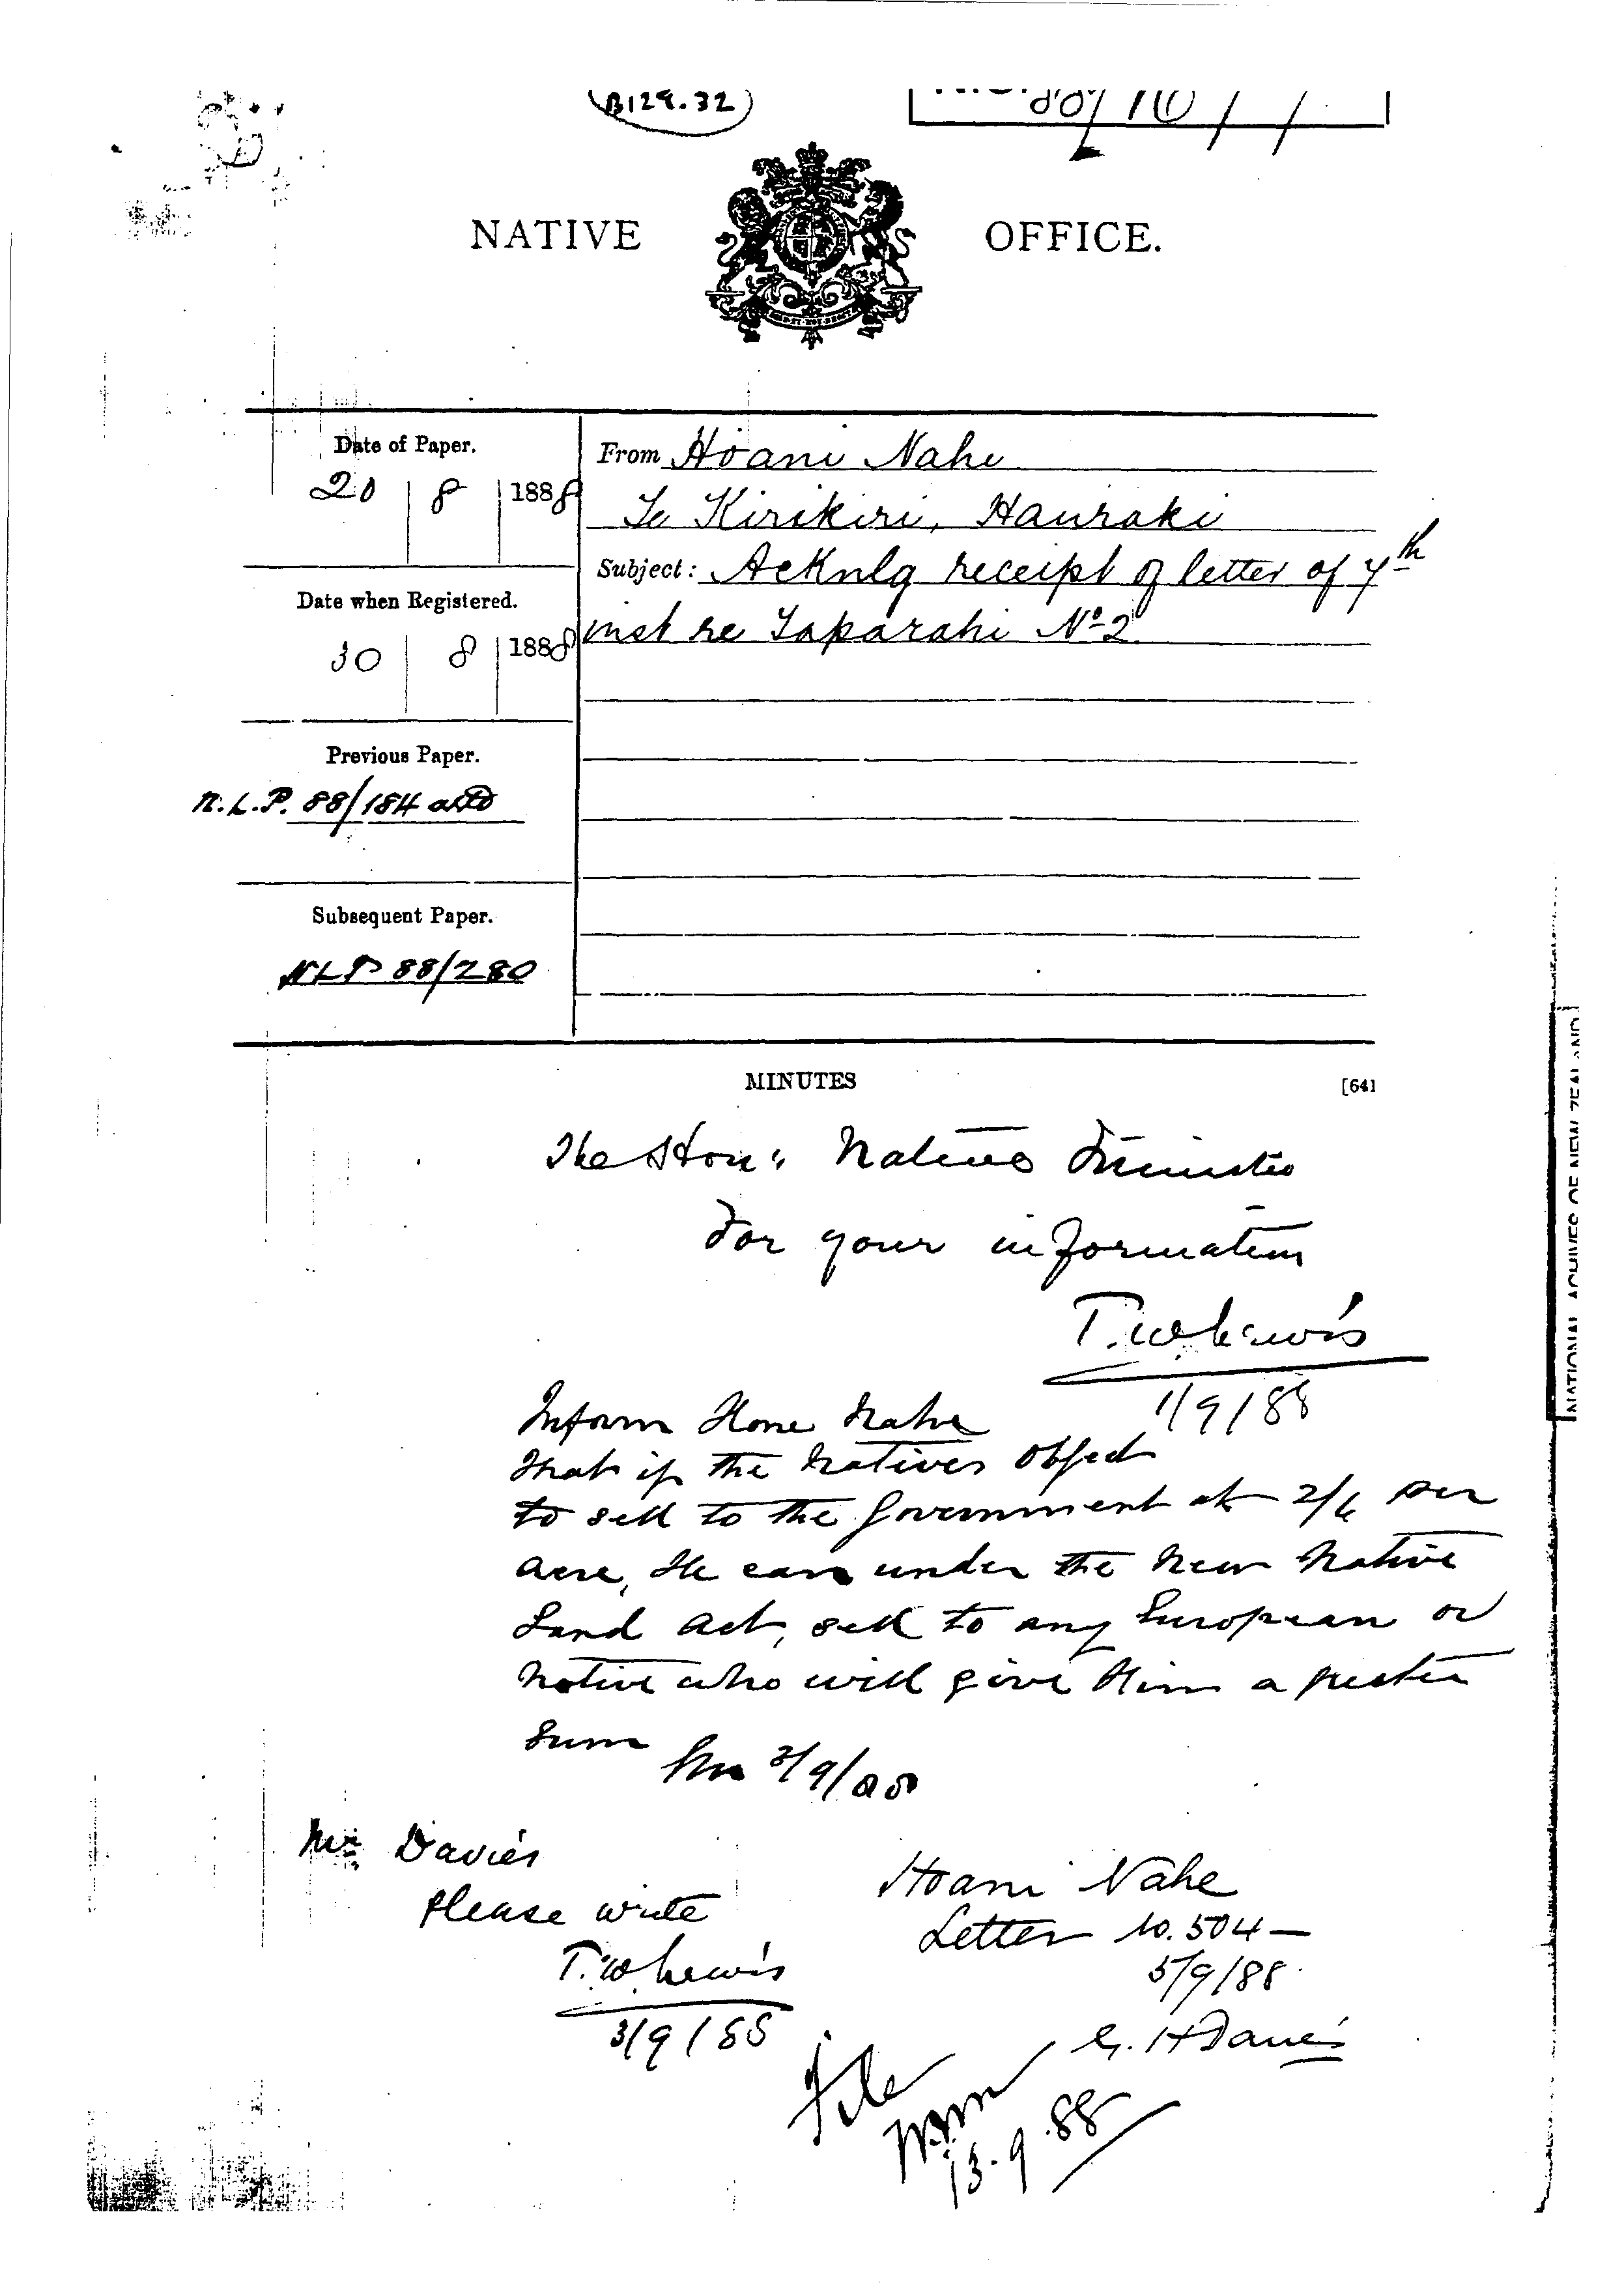 B129.32
NATIVE OFFICE.
Date of Paper.
20 | 8 | 1888
From Hoani Nahe
Te Kirikiri, Hauraki
Subject: Acknlg receipt of letter of 7th
inst re Taparahi No 2
Date when Registered.
30 | 8 | 1888
Previous Paper.
N.L.P. 88/184
Subsequent Paper.
NLP 88/280
MINUTES
[64]
The Hon: Native Minister
For your information
T.W. Lewis
1/9/88
Inform Hone Nahe
that if the Natives object
to sell to the Government at 2/6 per
acre, He can under the New Native
Land Act, sell to any European or
Native who will give Him a
sum
/9/88
Mr Davies
Please write
T.W. Lewis
3/9/88
Hoani Nahe
Letter No. 504 —
5/9/88
G. H Davies
File
13.9.88
NATIONAL ARCHIVES OF NEW ZEALAND